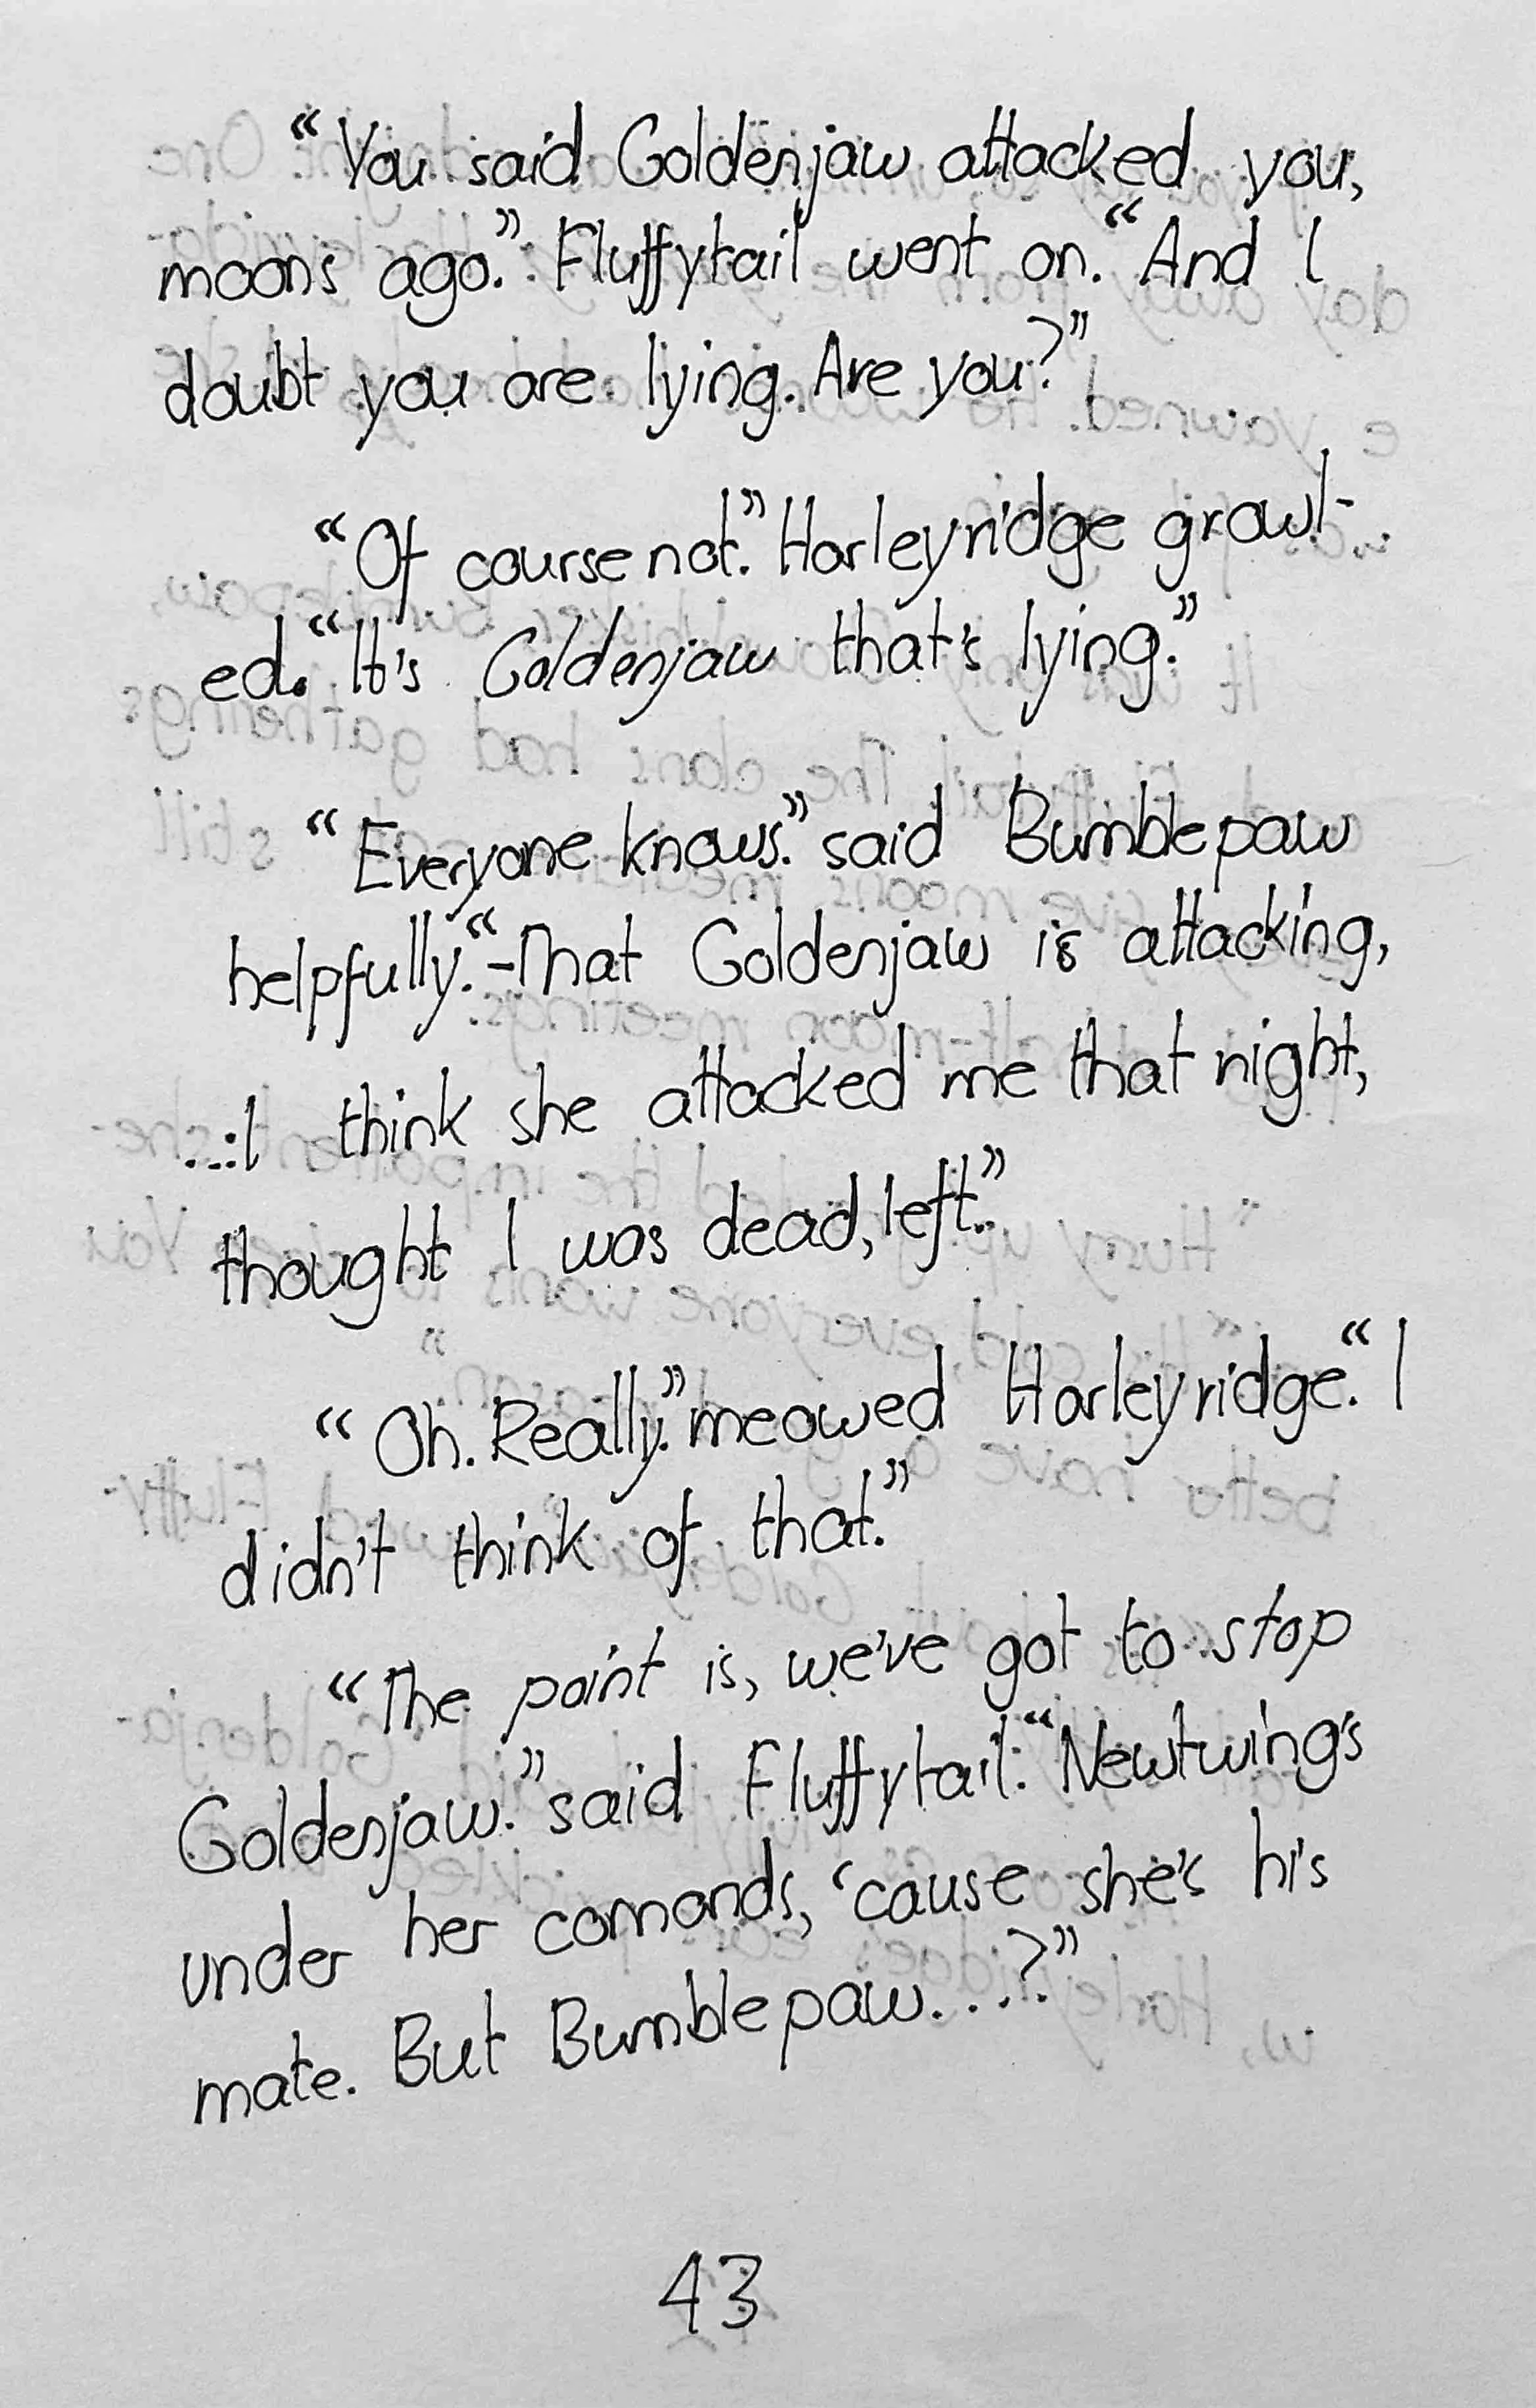 “You said Goldenjaw attacked you,
moons ago.” Fluffytail went on. “And I
doubt you are lying. Are you?”
“Of course not.” Harleyridge growl-
ed. “It's Goldenjaw that's lying.”
“Everyone knows.” said Bumblepaw
helpfully. “-That Goldenjaw is attacking,
...I think she attacked me that night,
thought I was dead, left.”
“Oh. Really.” meowed Harleyridge. “I
didn't think of that.”
“The point is, we've got to stop
Goldenjaw.” said Fluffytail. “Newtwing's
under her comands, ‘cause she's his
mate. But Bumblepaw....?”
43